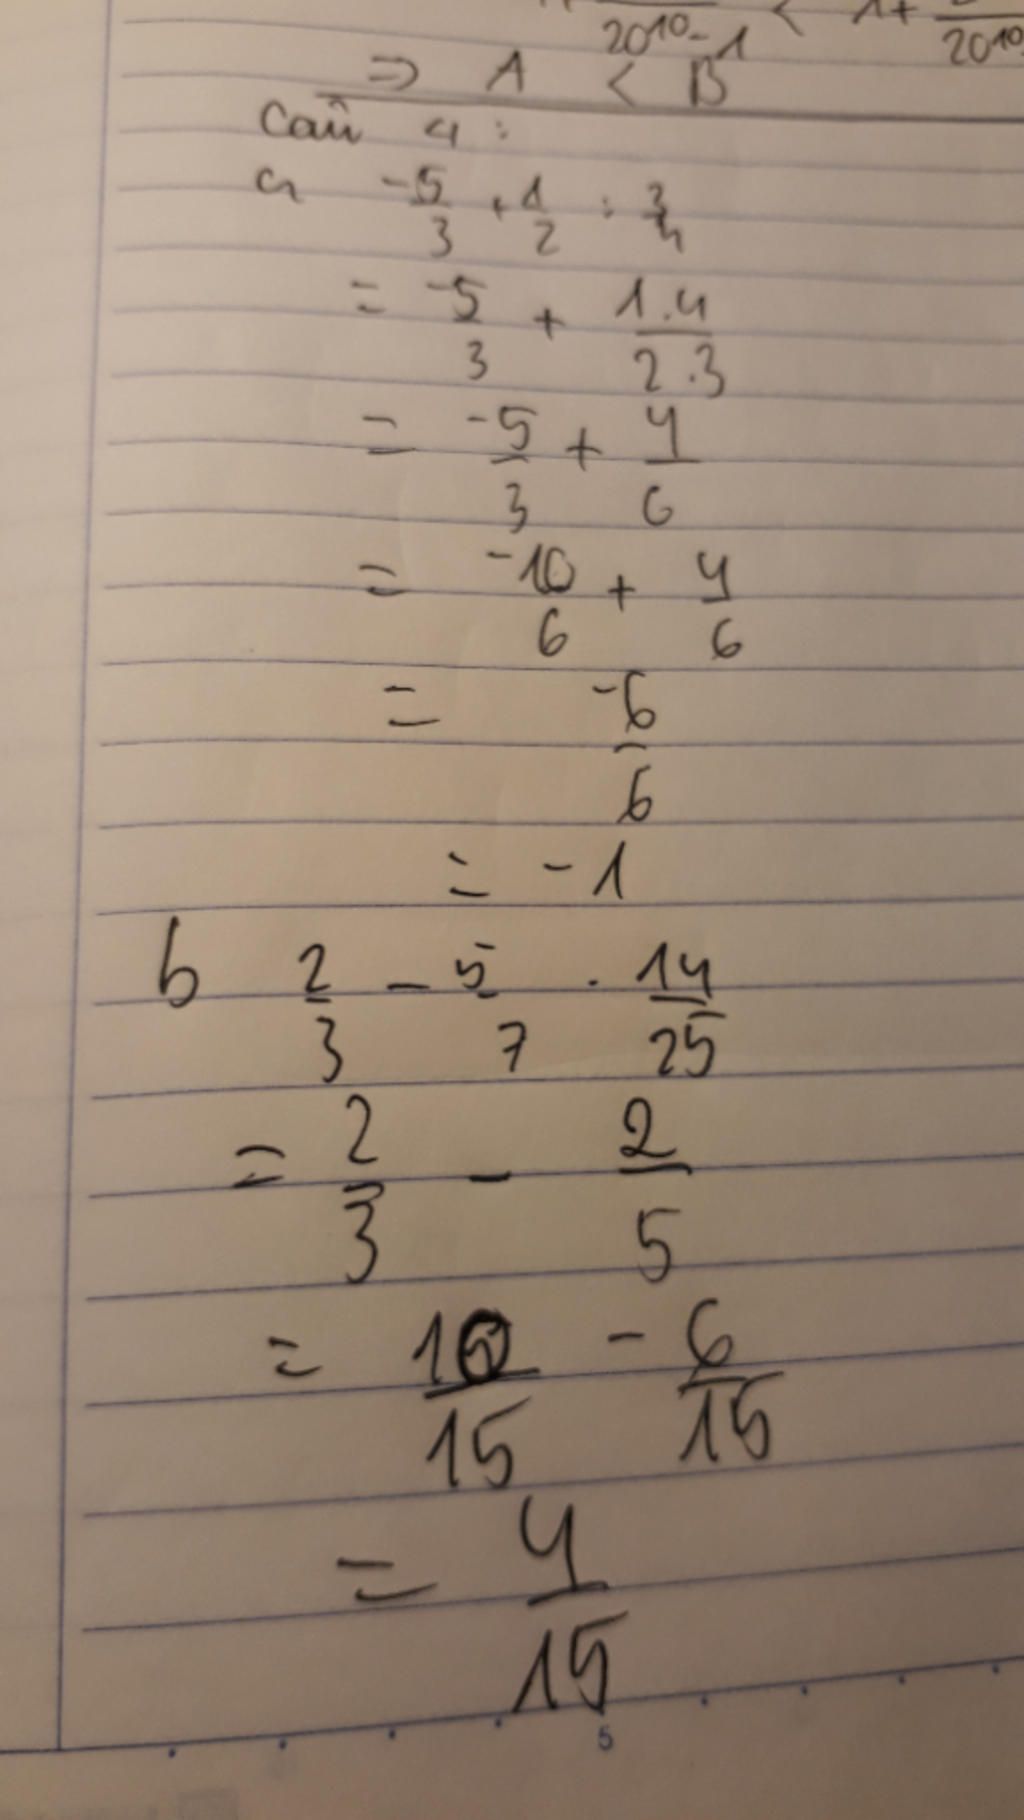 2010^10 - 1 < 1 + 2010^10
⇒ A < B
Câu 4:
a -5/3 + 1/2 : 3/4
= -5/3 + 1.4/2.3
= -5/3 + 4/6
= -10/6 + 4/6
= -6/6
= -1
b 2/3 - 5/7 . 14/25
= 2/3 - 2/5
= 10/15 - 6/15
= 4/15
5